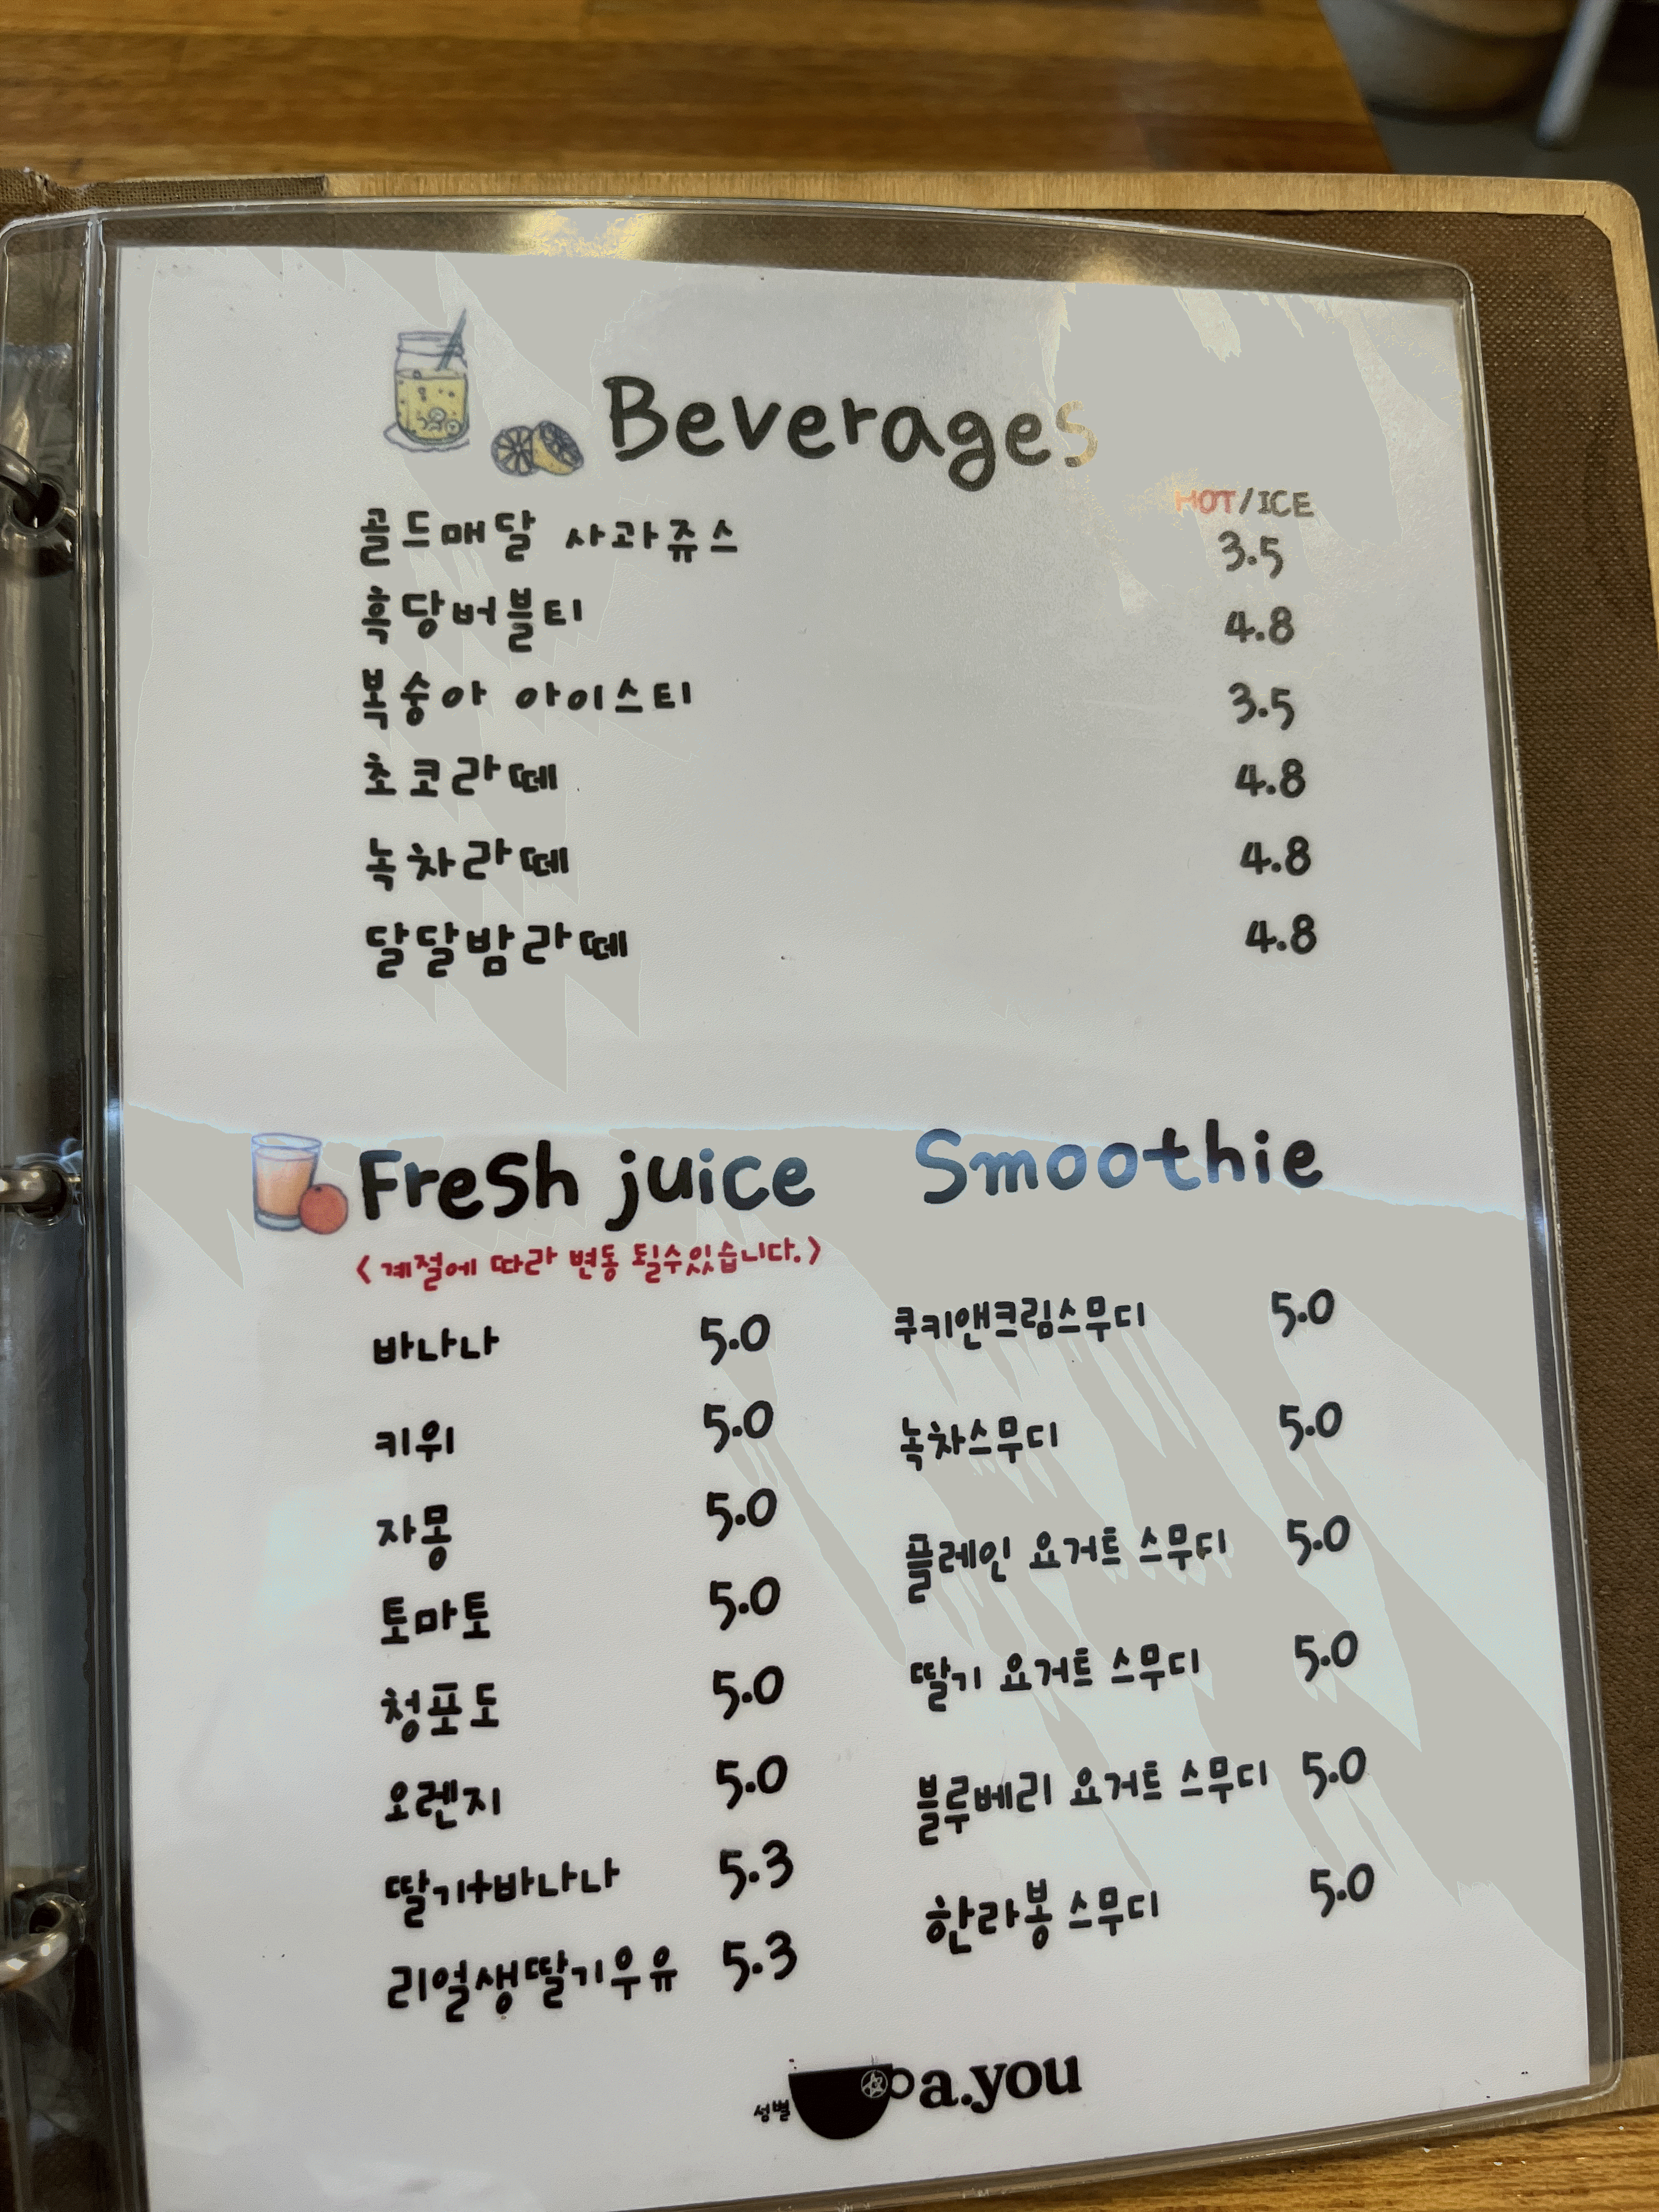 Beverages
HOT/ICE
골드매달 사과쥬스 3.5
흑당버블티 4.8
복숭아 아이스티 3.5
초코라떼 4.8
녹차라떼 4.8
달달밤라떼 4.8
Fresh juice
<계절에 따라 변동 될수있습니다.>
바나나 5.0
키위 5.0
자몽 5.0
토마토 5.0
청포도 5.0
오렌지 5.0
딸기+바나나 5.3
리얼생딸기우유 5.3
Smoothie
쿠키앤크림스무디 5.0
녹차스무디 5.0
플레인 요거트 스무디 5.0
딸기 요거트 스무디 5.0
블루베리 요거트 스무디 5.0
한라봉 스무디 5.0
성별 a.you